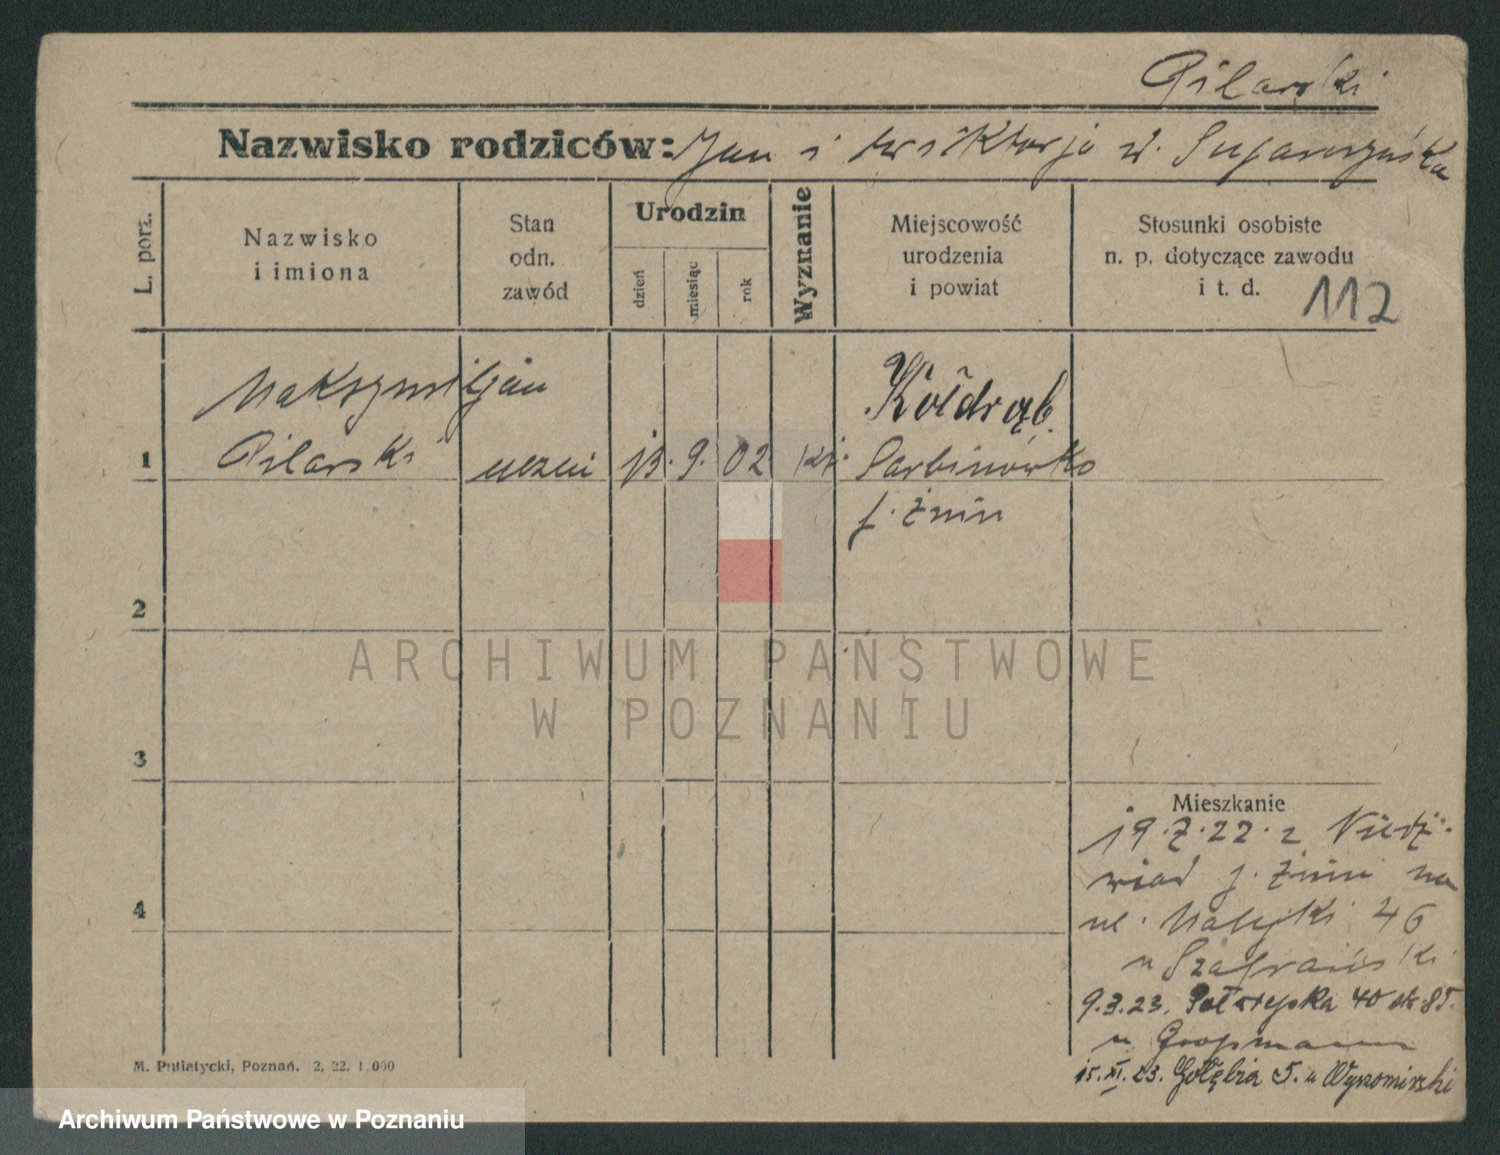 Pilarski
Nazwisko rodziców: Jan i Wiktorja d.
L. porz.
Nazwisko
i imiona
Stan
odn.
zawód
Urodzin
dzień
miesiąc
rok
Wyznanie
Miejscowość
urodzenia
i powiat
Stosunki osobiste
n. p. dotyczące zawodu
i t. d.
112
Maksymiljan
Kołdrąb.
1 Pilarski uczeń 13. 9. 02 kt. Sarbinowko
p. Żnin
2
ARCHIWUM PAŃSTWOWE
W POZNANIU
3
Mieszkanie
19.7.22. z Niedź-
wiad p. Żnin na
4
ul. 46
u Szafrański
9.3.23. 40 u
u Grossmann
15.XI.23. Gołębia 5. u Wyszomirski
M. Putiatycki, Poznań. 2. 22. 1.000
Archiwum Państwowe w Poznaniu